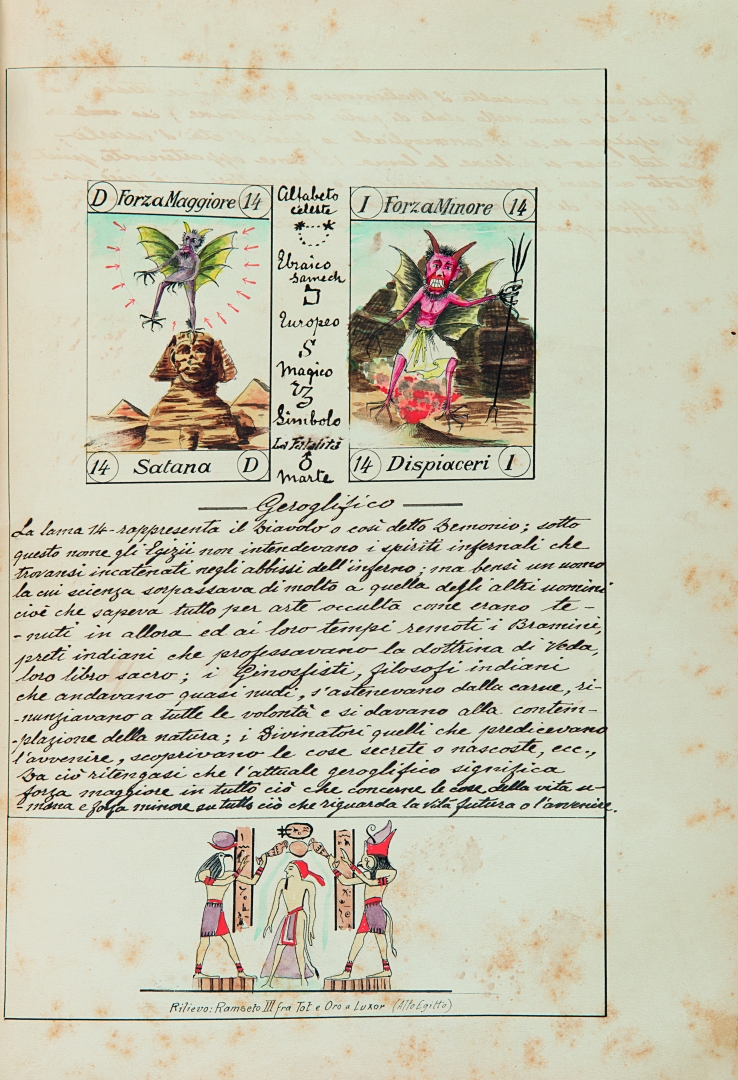 D Forza Maggiore 14
14 Satana D
Alfabeto
celeste
Ebraico
Samech
Europeo
S
Magico
Simbolo
La Fatalità
Marte
I Forza Minore 14
14 Dispiaceri I
Geroglifico
La lama 14 - rappresenta il Diavolo o così detto Demonio; sotto
questo nome gli Egizii non intendevano i spiriti infernali che
trovansi incatenati negli abbissi dell'inferno; ma bensì un uomo
la cui scienza sorpassava di molto a quella degli altri uomini
cioè che sapeva tutto per arte occulta come erano te-
-nuti in allora ed ai loro tempi remoti i Bramini,
preti indiani che professavano la dottrina di Veda,
loro libro sacro; i Ginosfisti, filosofi indiani
che andavano quasi nudi, s'astenevano dalla carne, ri-
-nunziavano a tutte le volontà e si davano alla contem-
-plazione della natura; i Divinatori quelli che predicevano
l'avvenire, scoprivano le cose secrete o nascoste, ecc.,
Da ciò ritengasi che l'attuale geroglifico significa
forza maggiore in tutto ciò che concerne le cose della vita u-
-mana e forza minore su tutto ciò che riguarda la vita futura o l'avvenire.
Rilievo: Ramseto III fra Tot e Oro a Luxor (Alto Egitto)